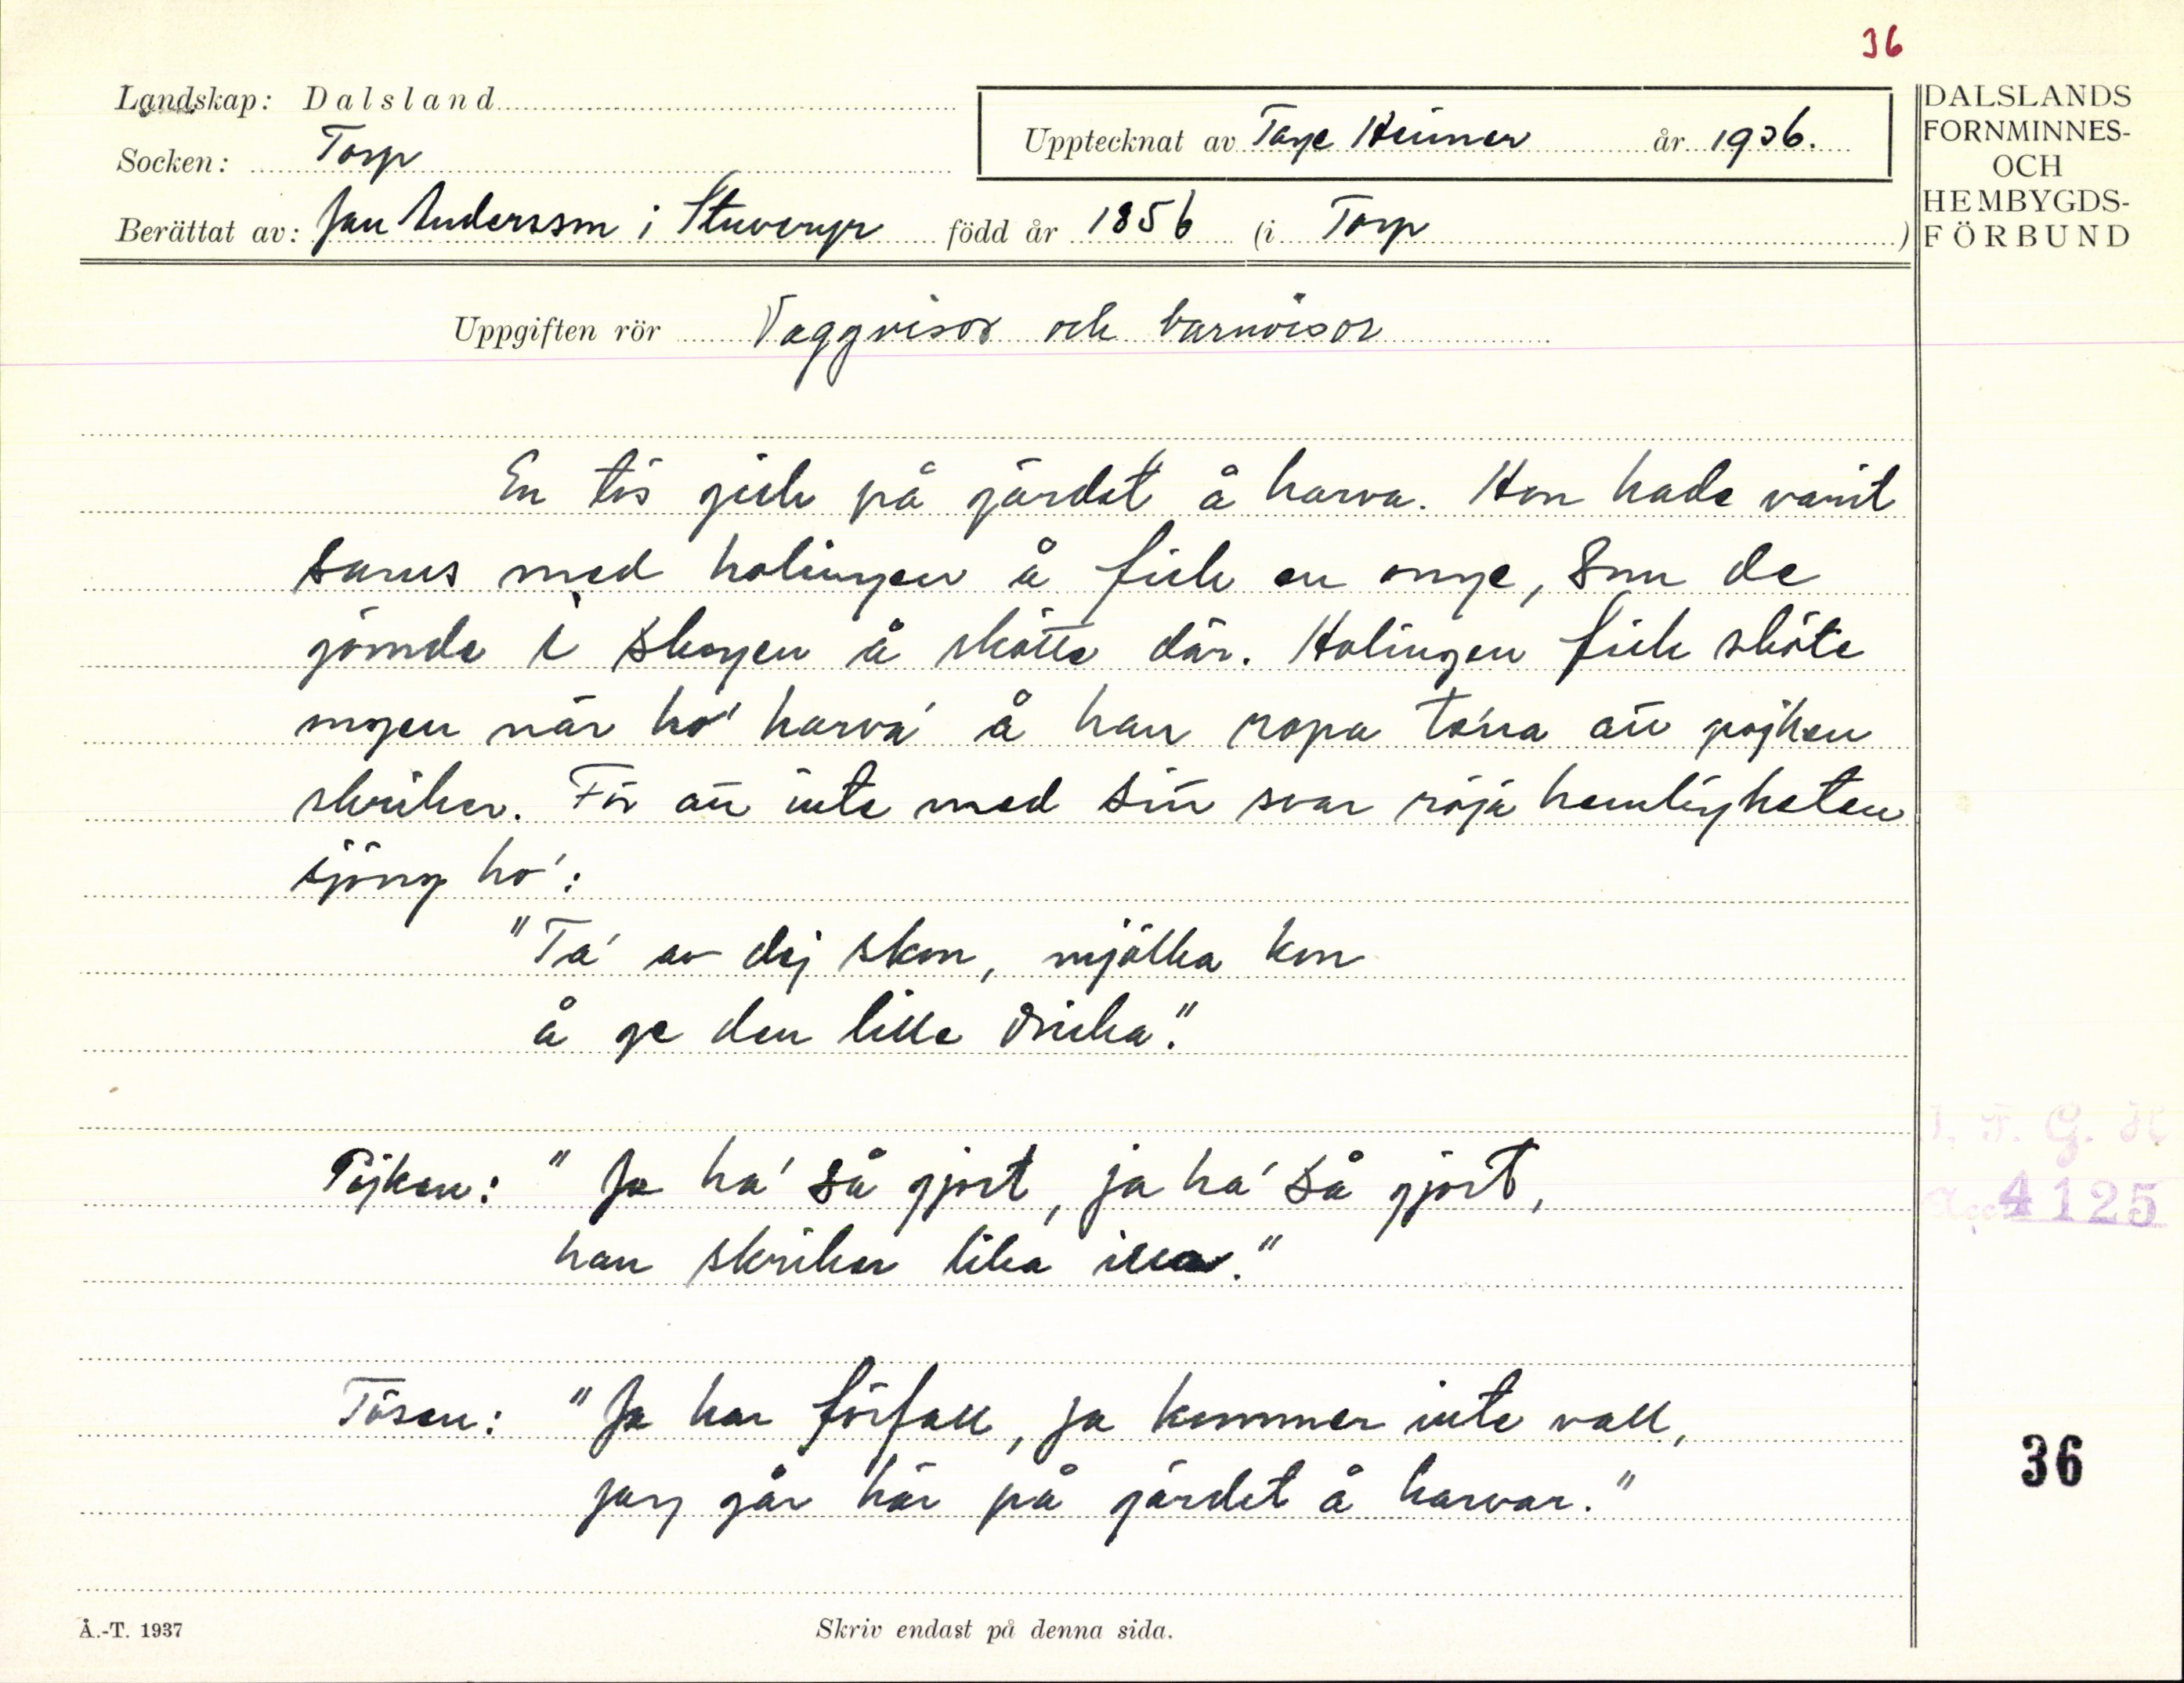 36
Landskap: Dalsland
Socken: Torp
Upptecknat av Tage Heimer år 1936.
Berättat av: Jan Andersson i född år 1856 (i Torp )
DALSLANDS
FORNMINNES-
OCH
HEMBYGDS-
FÖRBUND
Uppgiften rör Vaggvisor och barnvisor
En tös gick på gärdet å harva. Hon hade varit
sams med holingen å fick en onge, som de
gömde i skogen å skötte där. Holingen fick sköte
ongen när ho' harva' å han ropa att pojken
skriker. För att inte med sitt svar röja hemligheten
sjöng ho':
"Ta' av dej skon, mjölka kon
å ge den lille dricka."
Pöjken: "Ja ha' så gjort, ja ha' så gjort,
han skriker lika illa."
Tösen: "Ja har förfall, ja kommer inte vall,
jag går här på gärdet å harvar."
I. F. G. H
Acc. 4125
36
Å.-T. 1937
Skriv endast på denna sida.